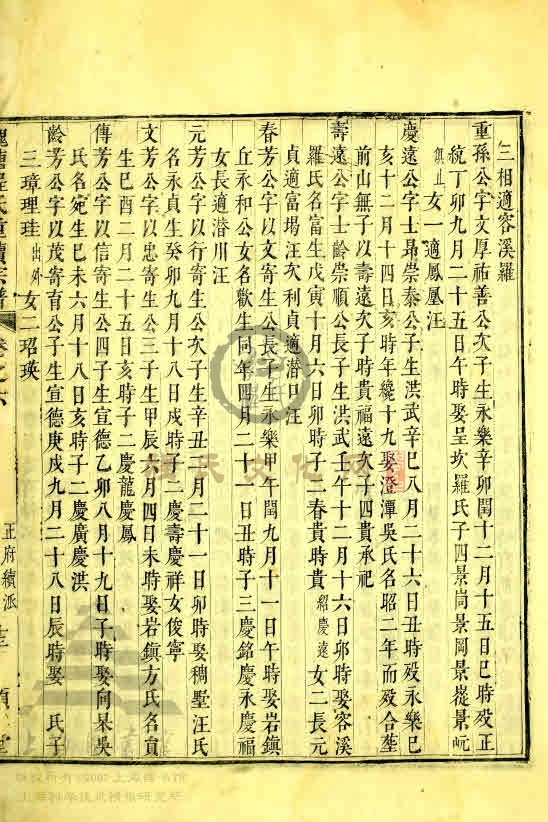 三相適容溪羅
重孫公字文厚祐善公次子生永樂辛卯閏十二月十五日巳時殁正
統丁卯九月二十五日午時娶呈坎羅氏子四景崗景岡景嵸景岏
鎮止 女一適鳳凰汪
慶遠公字士昻崇泰公子生洪武辛巳八月二十六日丑時殁永樂己
亥十二月十四日亥時年纔十九娶澄潭吳氏名昭二年而殁合塟
前山無子以壽遠次子時貴福遠次子四貴承祀
壽遠公字士齡崇順公長子生洪武壬午十二月十六日卯時娶容溪
羅氏名富生戊寅十月六日卯時子二春貴時貴 紹慶遠 女二長元
貞適富塲汪次利貞適潜口汪
春芳公字文以寄生公長子生永樂甲午閏九月十一日午時娶岩鎮
丘永和公女名歡生同年四月二十一日丑時子三慶銘慶永慶福
女長適潜川汪
元芳公字以行寄生公次子生辛丑二月二十一日卯時娶稠墅汪氏
名永貞生癸卯九月十八日戍時子二慶壽慶祥女俊寧
文芳公字以忠寄生公三子生甲辰六月四日未時娶岩鎮方氏名貢
生己酉二月二十五日亥時子二慶龍慶鳳
傳芳公字以信寄生公四子生宣德乙卯八月十九日子時娶向杲吳
氏名宛生己未六月十八日亥時子二慶廣慶洪
齡芳公字以茂寄育公子生宣德庚戌九月二十八日辰時娶 氏子
三璋理珪 出外 女二玿瑛
氏重續宗譜 卷之六
正府績派